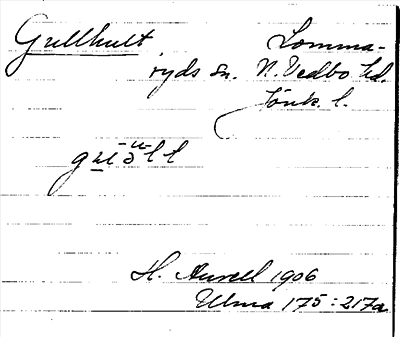 Gullhult Lomma-
ryds sn. N. Vedbo hd.
Jönk. l.
H. Aurell 1906
Ulma 175:217a